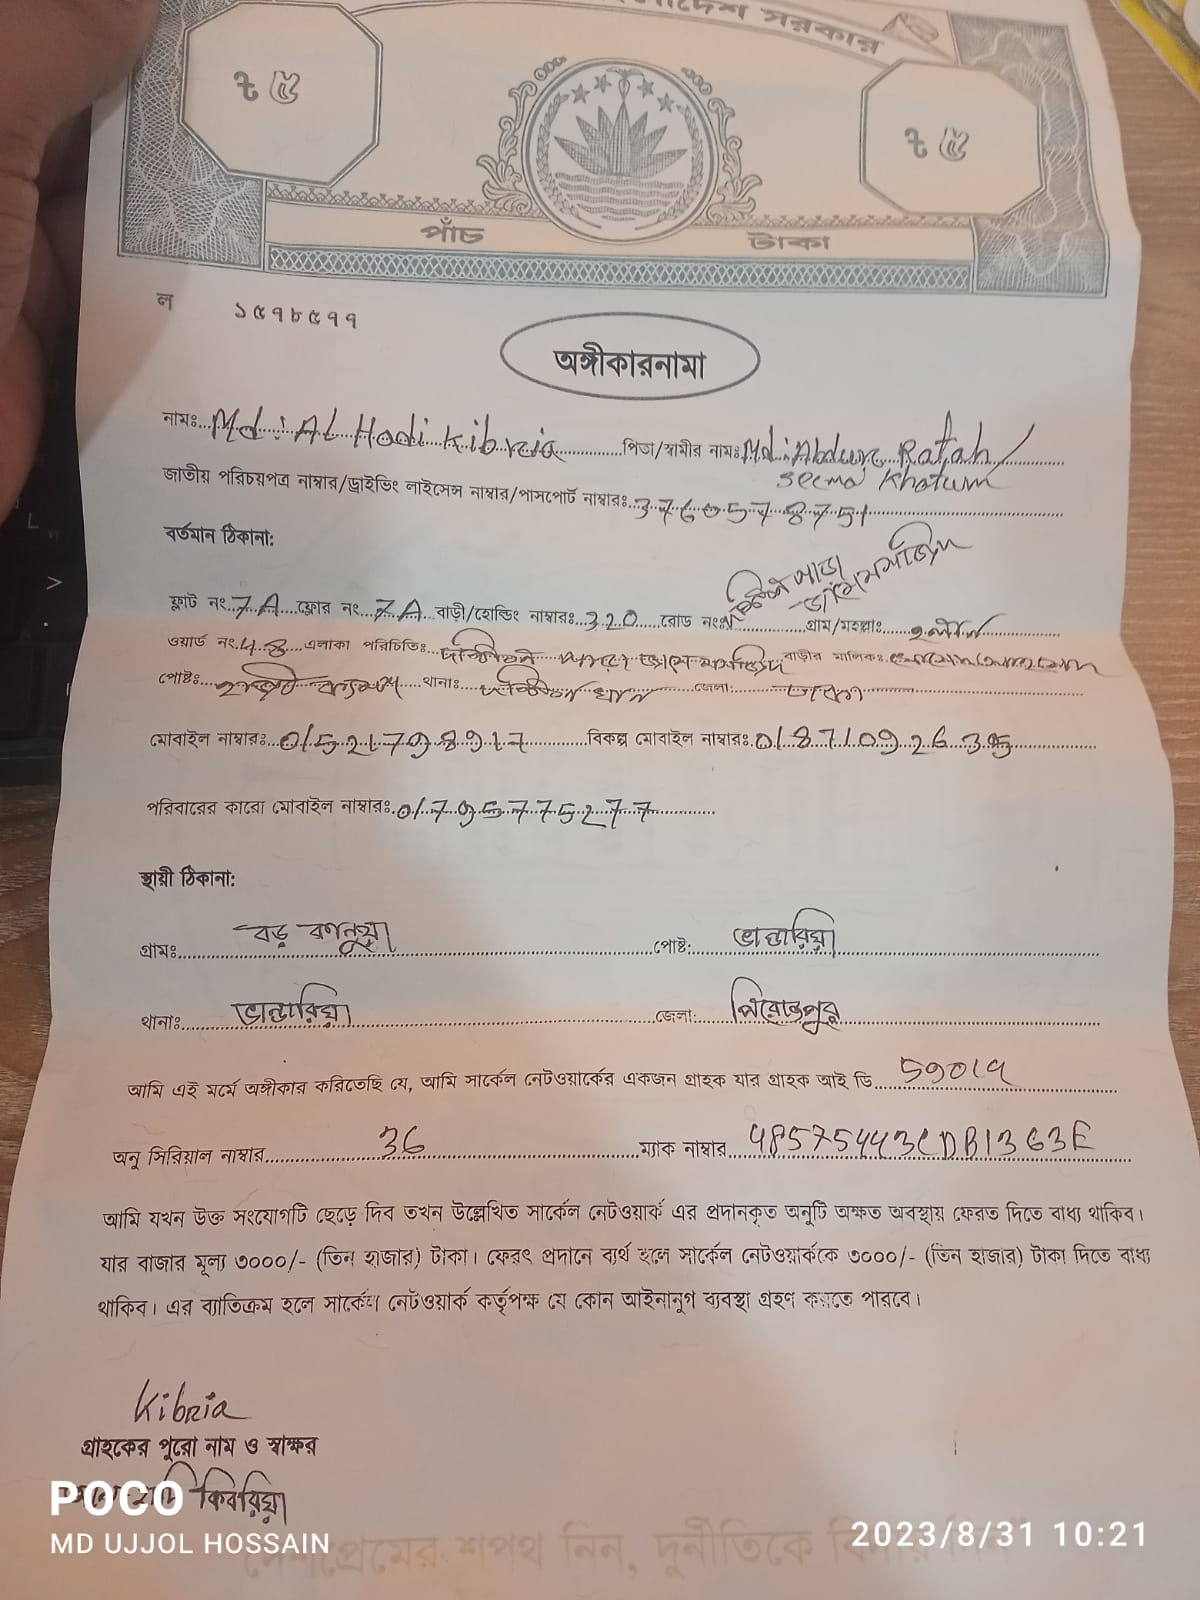 সরকার
৳ ৫ ৳ ৫
পাঁচ টাকা
ল ১৫৭৮৫৭৭
অঙ্গীকারনামা
নামঃ Md: Al Hadi Kibria পিতা/স্বামীর নামঃ Md: Abdur Rafah/
Seema Khatum
জাতীয় পরিচয়পত্র নাম্বার/ড্রাইভিং লাইসেন্স নাম্বার/পাসপোর্ট নাম্বারঃ 3760578751
বর্তমান ঠিকানা:
ফ্লাট নং 7A ফ্লোর নং 7A বাড়ী/হোল্ডিং নাম্বারঃ 320 রোড নংঃ গ্রাম/মহল্লাঃ
ওয়ার্ড নং 48 এলাকা পরিচিতিঃ বাড়ীর মালিকঃ
পোষ্টঃ থানাঃ জেলা: ঢাকা
মোবাইল নাম্বারঃ 01521798917 বিকল্প মোবাইল নাম্বারঃ 018710926395
পরিবারের কারো মোবাইল নাম্বারঃ 01795775277
স্থায়ী ঠিকানা:
গ্রামঃ বড় কানুয়া পোষ্ট: ভান্ডারিয়া
থানাঃ ভান্ডারিয়া জেলা: পিরোজপুর
আমি এই মর্মে অঙ্গীকার করিতেছি যে, আমি সার্কেল নেটওয়ার্কের একজন গ্রাহক যার গ্রাহক আই ডি 59019
অনু সিরিয়াল নাম্বার 36 ম্যাক নাম্বার 48575443CDB1363E
আমি যখন উক্ত সংযোগটি ছেড়ে দিব তখন উল্লেখিত সার্কেল নেটওয়ার্ক এর প্রদানকৃত অনুটি অক্ষত অবস্থায় ফেরত দিতে বাধ্য থাকিব।
যার বাজার মূল্য ৩০০০/- (তিন হাজার) টাকা। ফেরৎ প্রদানে ব্যর্থ হলে সার্কেল নেটওয়ার্ককে ৩০০০/- (তিন হাজার) টাকা দিতে বাধ্য
থাকিব। এর ব্যাতিক্রম হলে সার্কেল নেটওয়ার্ক কর্তৃপক্ষ যে কোন আইনানুগ ব্যবস্থা গ্রহণ করতে পারবে।
Kibria
গ্রাহকের পুরো নাম ও স্বাক্ষর
কিবরিয়া
POCO
MD UJJOL HOSSAIN
2023/8/31 10:21